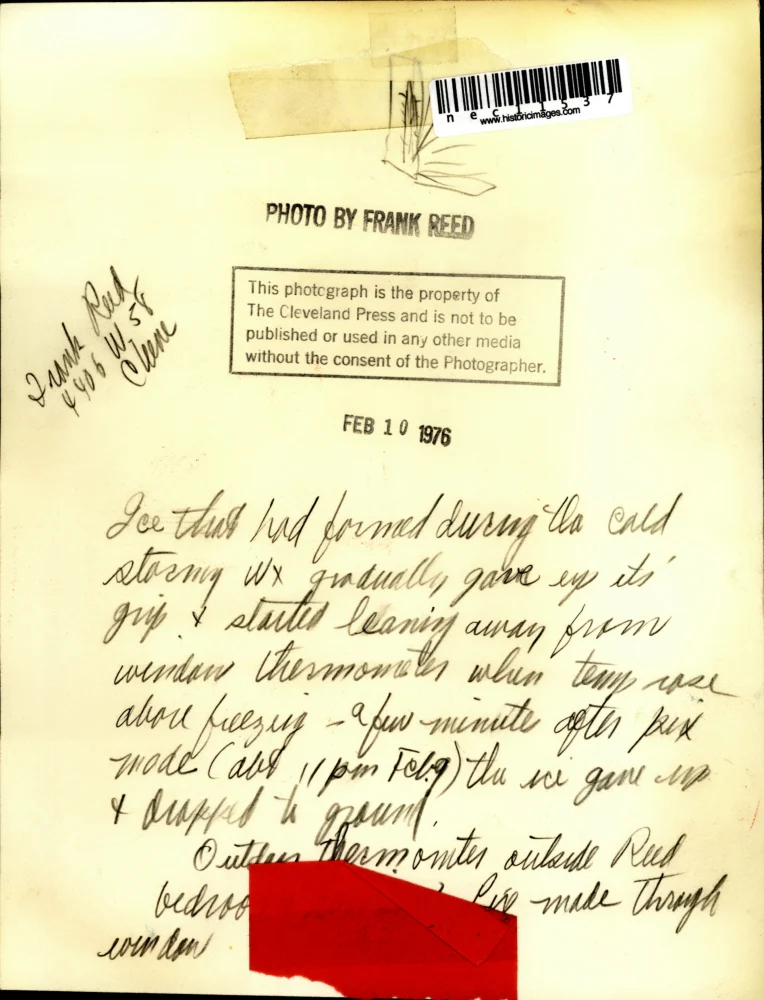 nec11537
www.historicimages.com
PHOTO BY FRANK REED
This photograph is the property of
The Cleveland Press and is not to be
published or used in any other media
without the consent of the Photographer.
Frank Reed
4406 W 58
Cleve
FEB 10 1976
Ice that had formed during the cold
stormy Wx gradually gave up its'
grip & started leaning away from
window thermometer when temp rose
above freezing - a few minutes after pix
made (abt 11 pm Feb 9) the ice gave up
& dropped to ground.
Outdoor thermomter outside Reed
bedroo
Pix made through
window